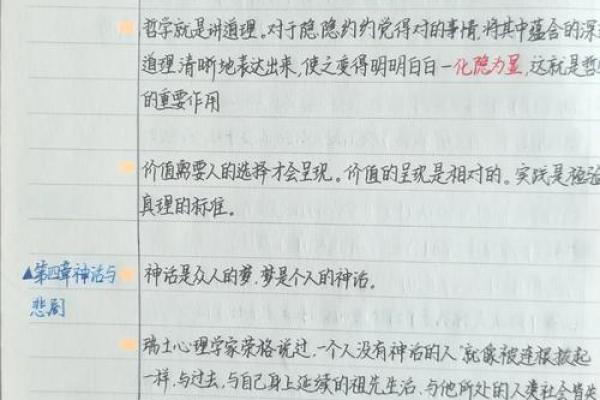 哲学就是讲道理。对于隐隐约约觉得对的事情,将其中蕴含的深
道理,清晰地表达出来,使之变得明明白白一化隐为显,这就是哲
的重要作用
价值需要人的选择才会呈现。价值的呈现是相对的。实践是检验
真理的标准。
▲第四章神话与
悲剧
神话是众人的梦,梦是个人的神话。
瑞士心理学家荣格说过,一个人没有神话的人"就像被连根拔起
一样,与过去,与自己身上延续的祖先生活,与他所处的人类社会皆失